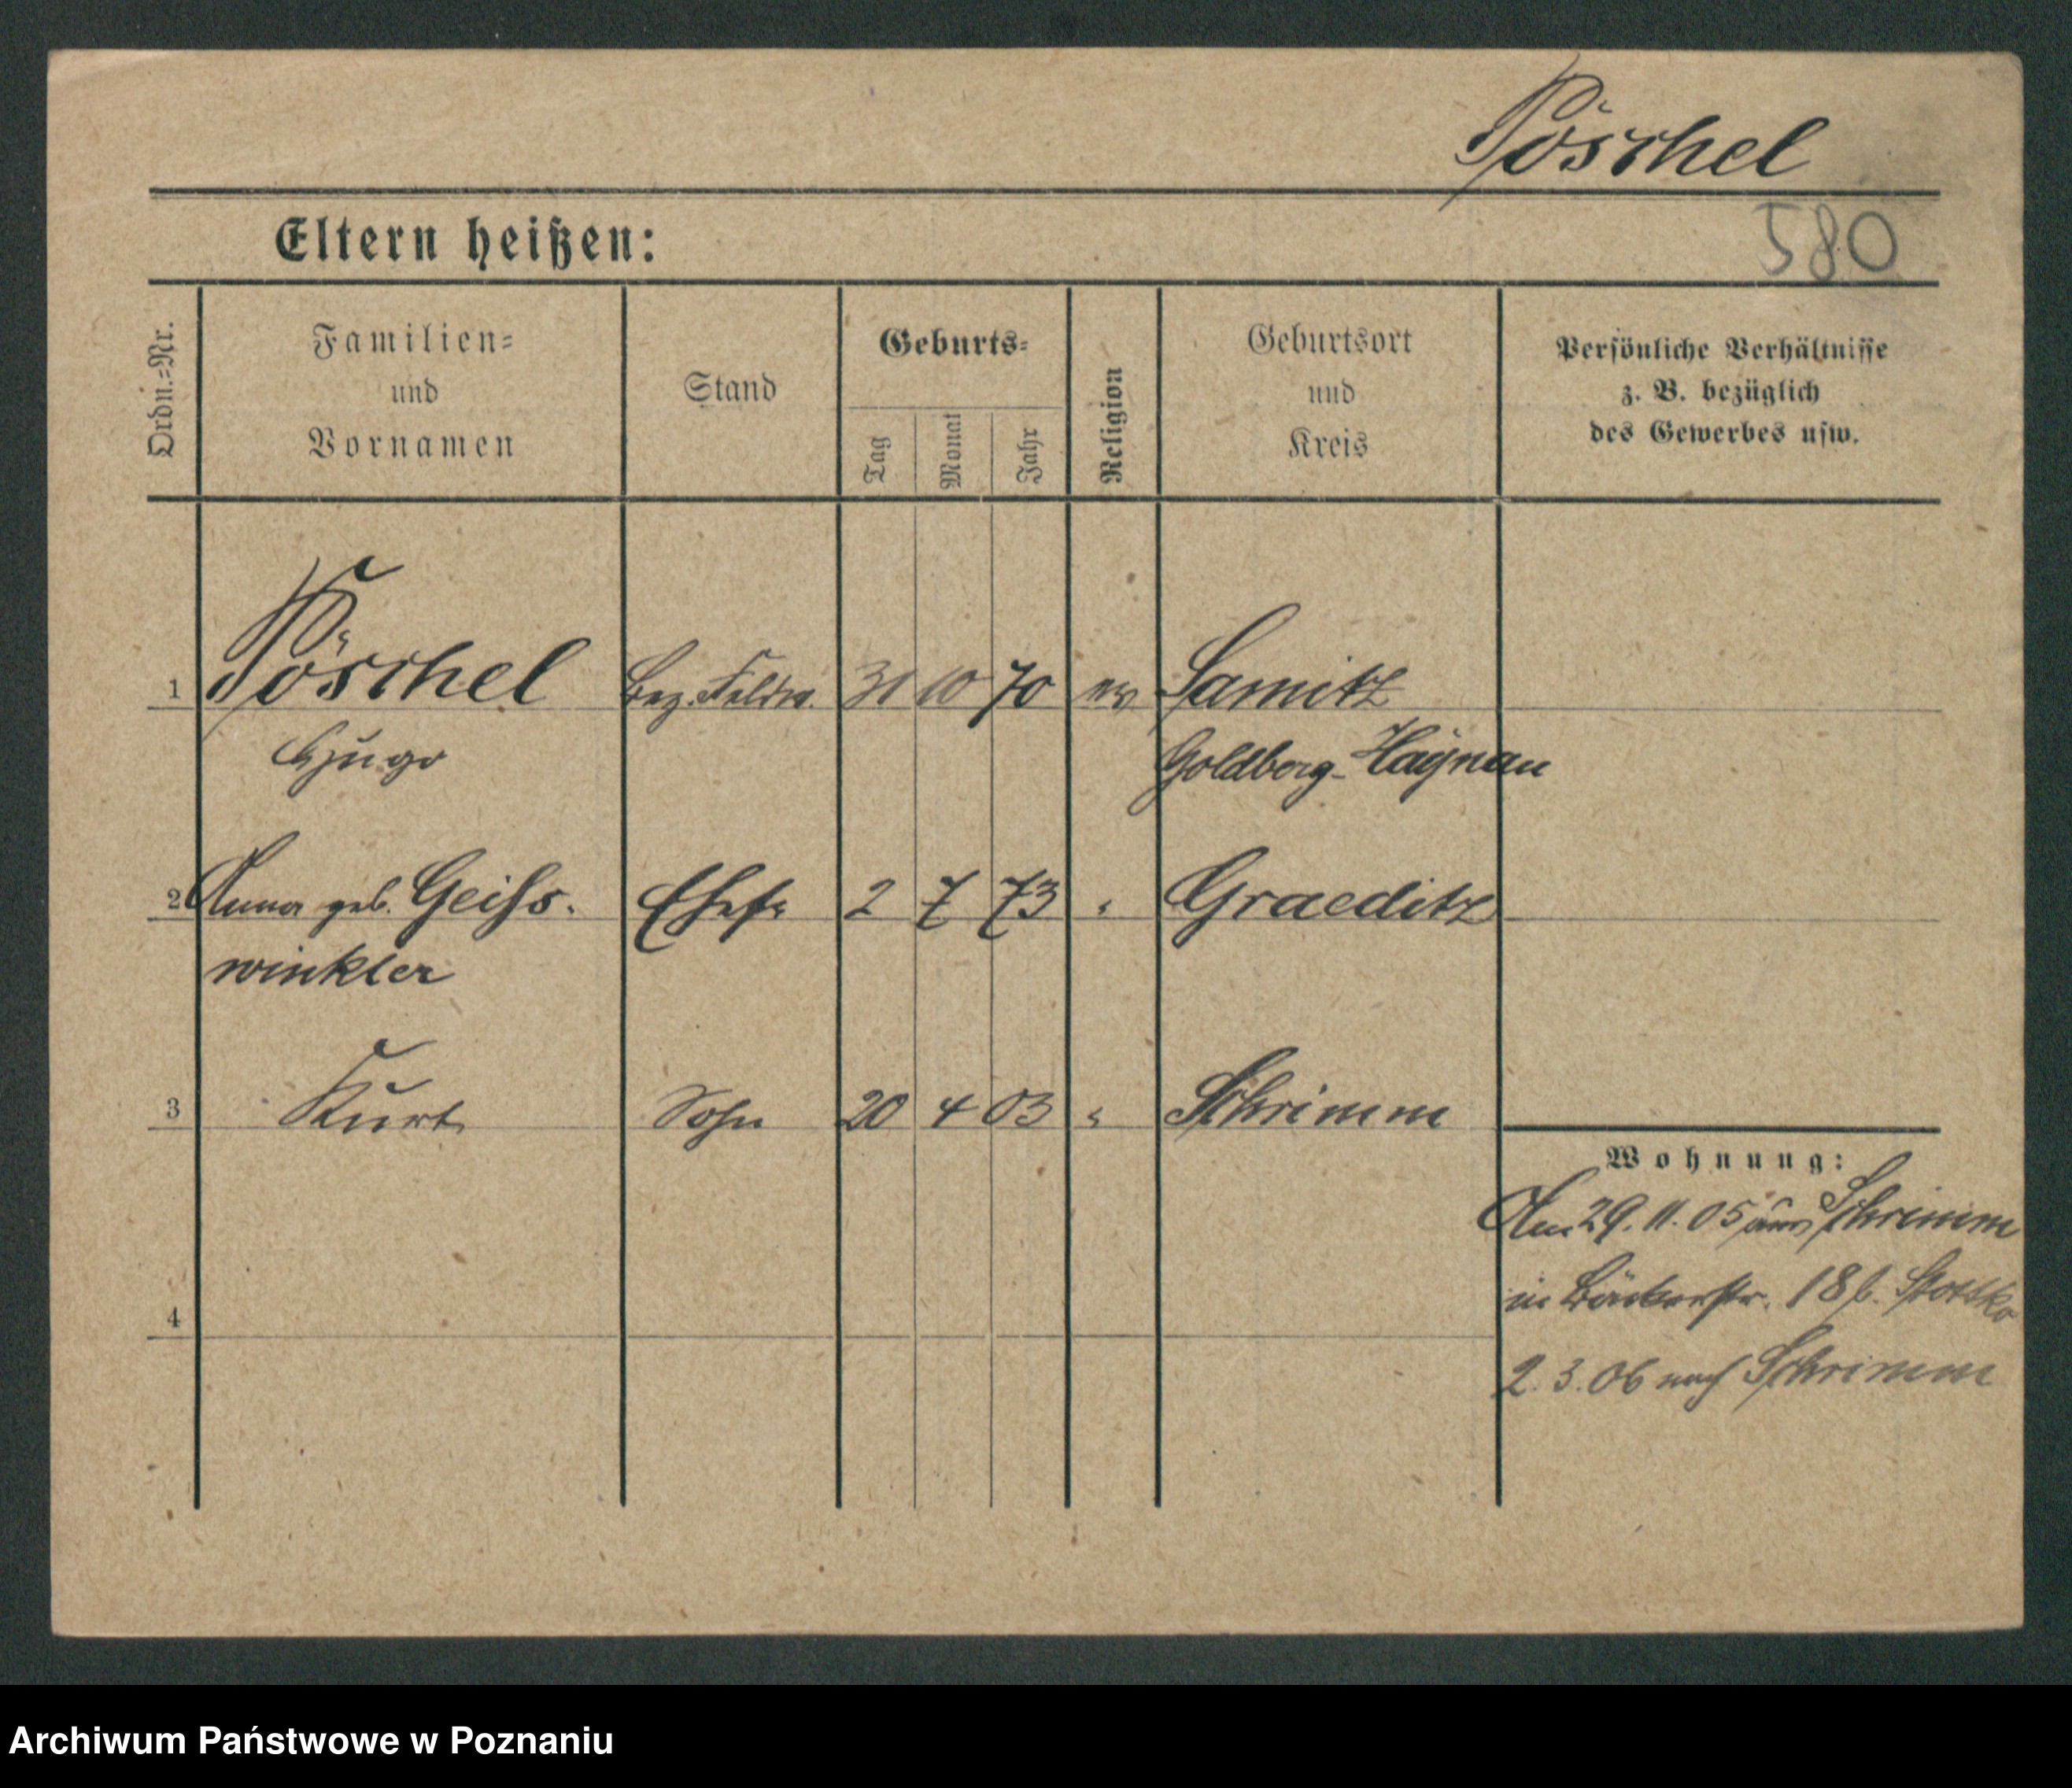 Pöschel
Eltern heißen:
580
Ordn.=Nr.
Familien=
und
Vornamen
Stand
Geburts=
Tag
Monat
Jahr
Religion
Geburtsort
und
Kreis
Persönliche Verhältnisse
z. B. bezüglich
des Gewerbes usw.
1 Pöschel Bez. Feldw. 31 10 70 ev Samitz
Hugo Goldberg-Haynau
2 Anna geb. Geiss- Ehefr 2 7 73 " Graeditz
winkler
3 Kurt Sohn 20 4 03 " Schrimm
Wohnung:
Am 29. 11. 05 aus Schrimm
in Bäckerstr. 18 b.
4
2. 3. 06 nach Schrimm
Archiwum Państwowe w Poznaniu